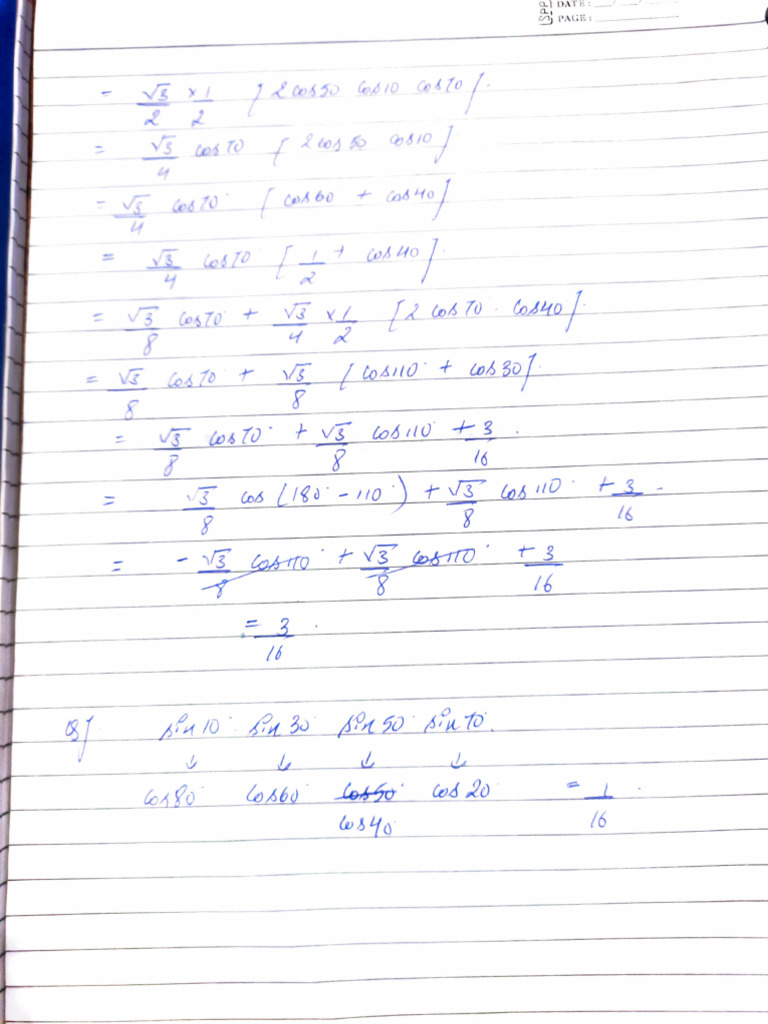 (SPP) DATE: / /
PAGE:
= √3/2 × 1/2 [2cos50 cos10 cos70].
= √3/4 cos70 [2cos50 cos10]
= √3/4 cos70° [cos60 + cos40]
= √3/4 cos70 [1/2 + cos40].
= √3/8 cos70 + √3/4 × 1/2 [2 cos70. cos40].
= √3/8 cos70° + √3/8 [cos110° + cos30].
= √3/8 cos70° + √3/8 cos110° + 3/16.
= √3/8 cos (180° - 110°) + √3/8 cos110° + 3/16.
= - √3/8 cos110° + √3/8 cos110° + 3/16
= 3/16.
Q]. sin10° sin30° sin50° sin70°.
↓ ↓ ↓ ↓
cos80° cos60° cos50° cos20° = 1/16.
cos40